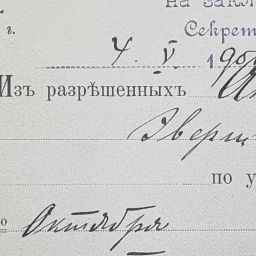 на закл
Секрет
г. 4. V. 190
Изъ разрѣшенныхъ
по у
Октября